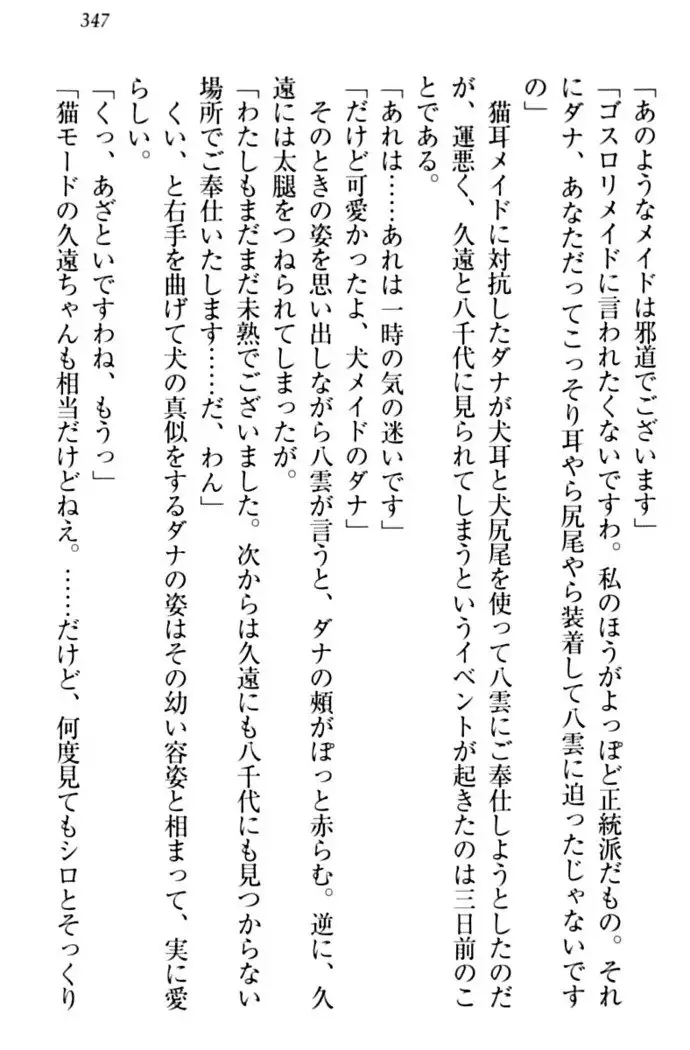 347
「あのようなメイドは邪道でございます」
「ゴスロリメイドに言われたくないですわ。私のほうがよっぽど正統派だもの。それ
にダナ、あなただってこっそり耳やら尻尾やら装着して八雲に迫ったじゃないです
の」
猫耳メイドに対抗したダナが犬耳と犬尻尾を使って八雲にご奉仕しようとしたのだ
が、運悪く、久遠と八千代に見られてしまうというイベントが起きたのは三日前のこ
とである。
「あれは……あれは一時の気の迷いです」
「だけど可愛かったよ、犬メイドのダナ」
そのときの姿を思い出しながら八雲が言うと、ダナの頰がぽっと赤らむ。逆に、久
遠には太腿をつねられてしまったが。
「わたしもまだまだ未熟でございました。次からは久遠にも八千代にも見つからない
場所でご奉仕いたします……だ、わん」
くい、と右手を曲げて犬の真似をするダナの姿はその幼い容姿と相まって、実に愛
らしい。
「くっ、あざといですわね、もうっ」
「猫モードの久遠ちゃんも相当だけどねえ。……だけど、何度見てもシロとそっくり